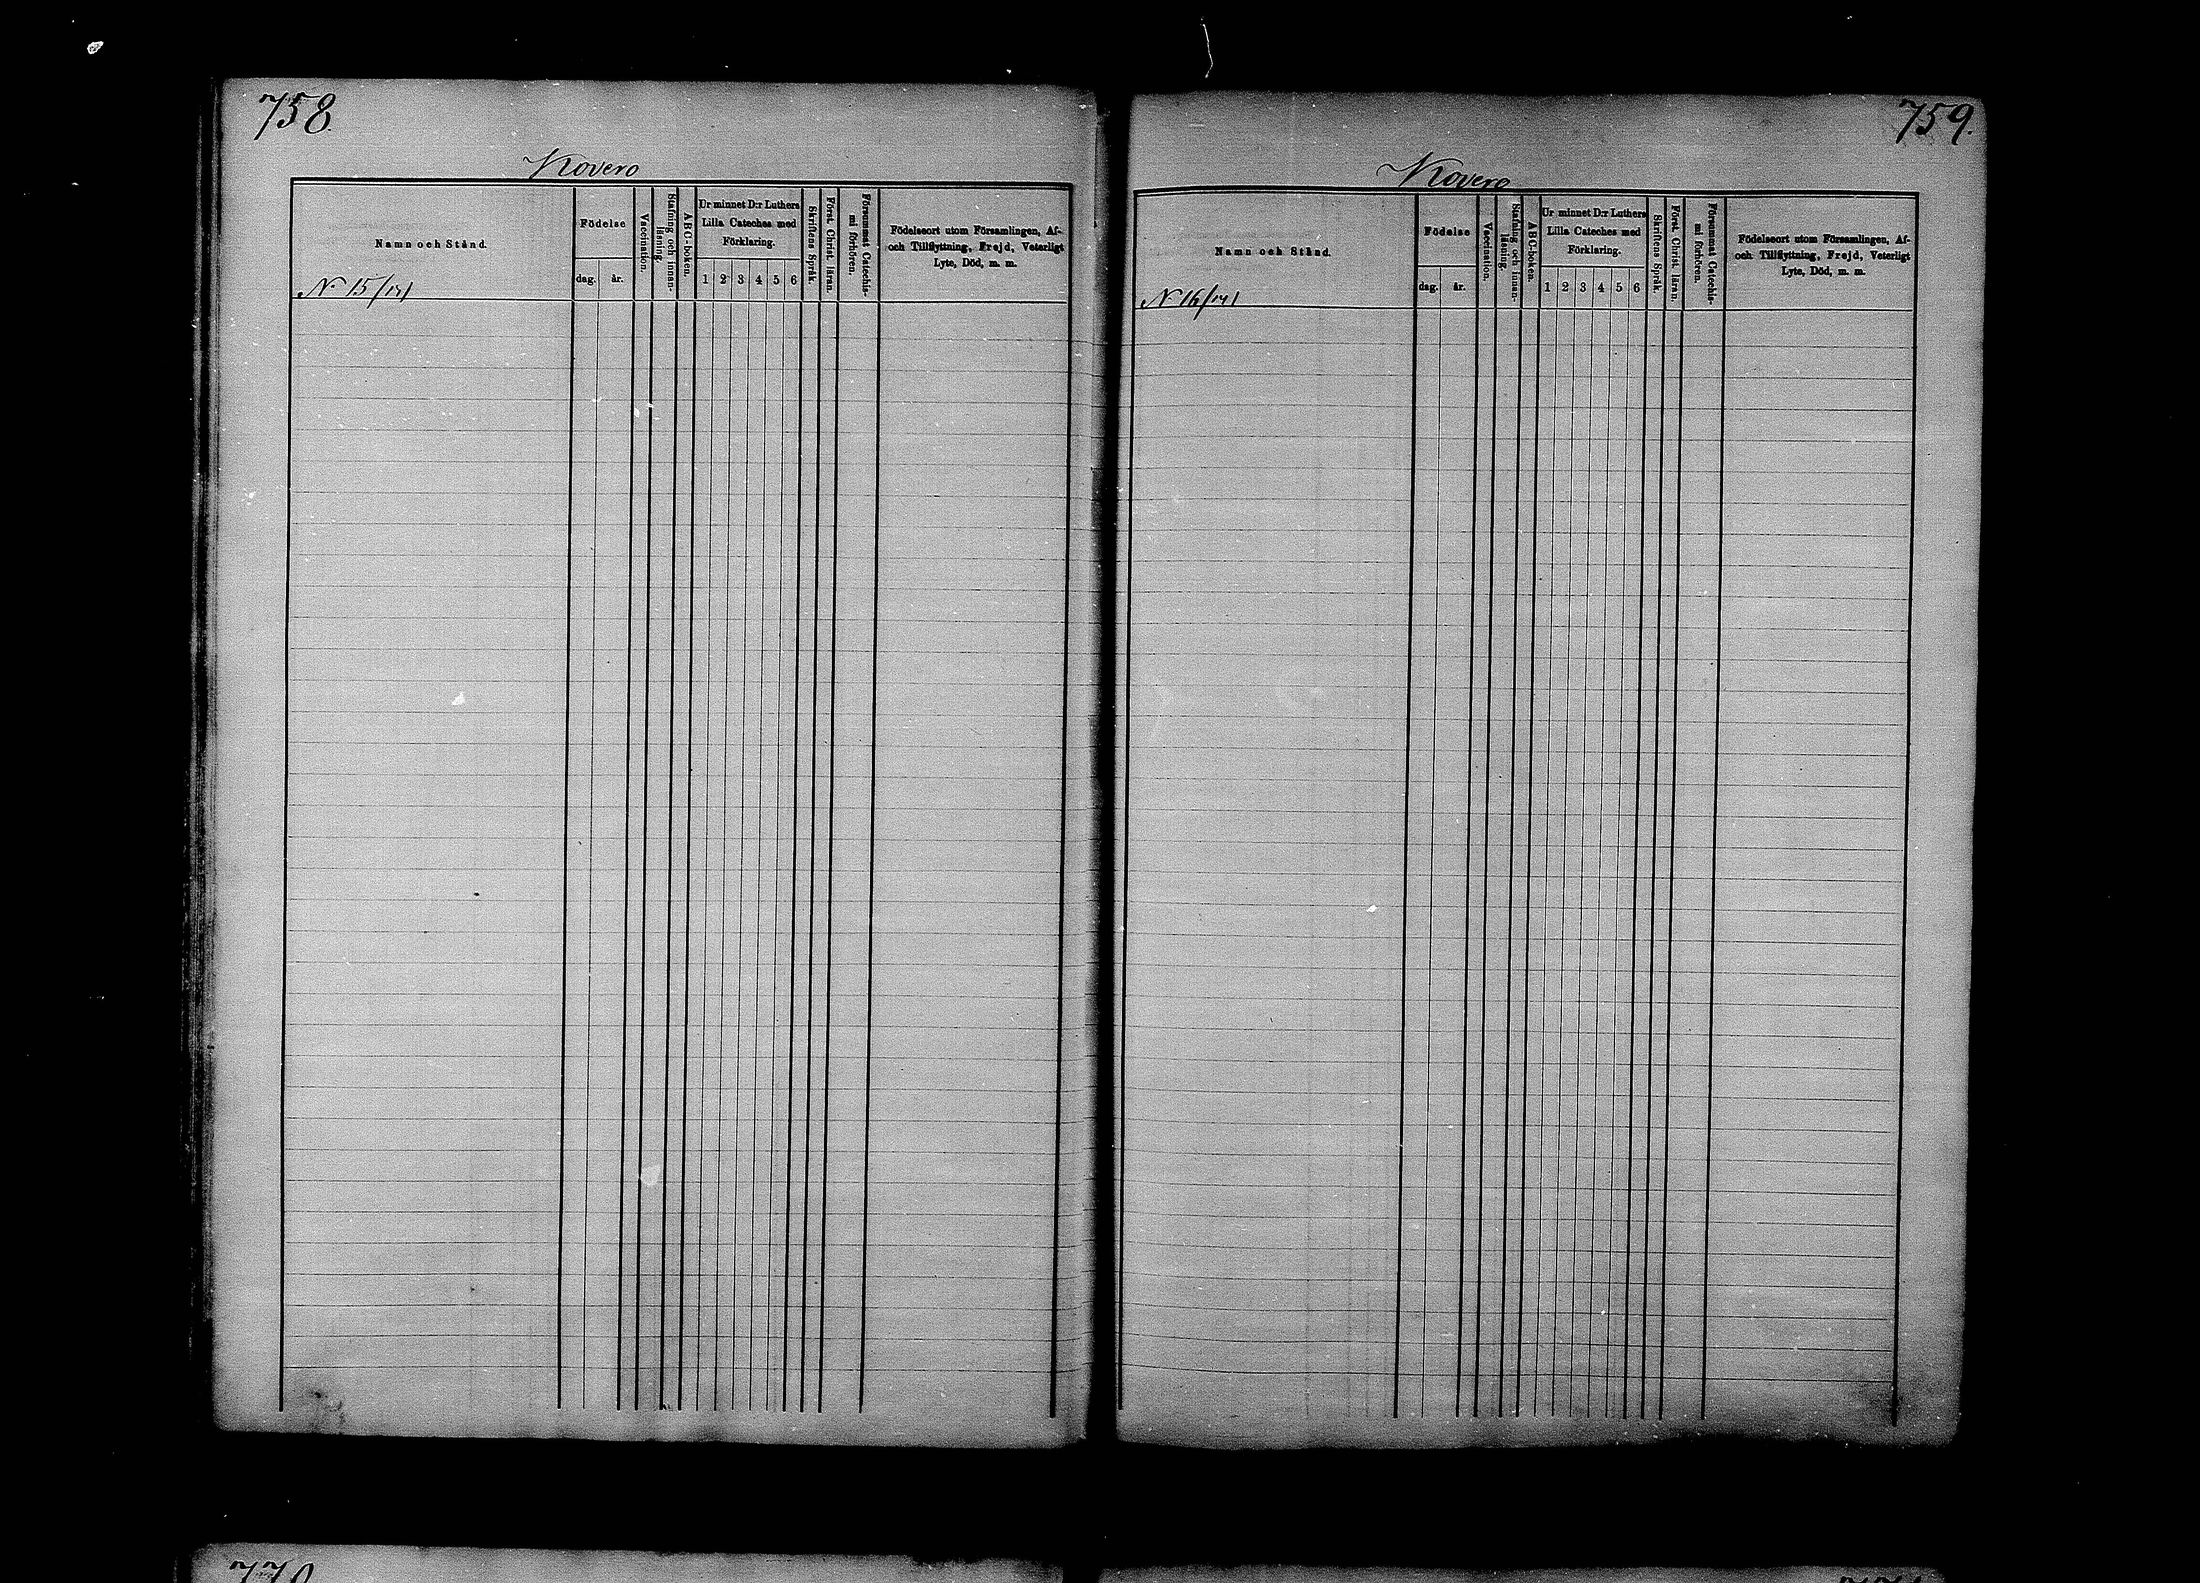 758.
Kovero
Namn och Stånd.
Födelse
dag.
år.
Vaccination.
Stafning och innan-
läsning.
ABC-boken.
Ur minnet D:r Luthers
Lilla Cateches med
Förklaring.
1 2 3 4 5 6
Skriftens Språk.
Först. Christ. läran.
Försummat Catechis-
mi förhören.
Födelseort utom Församlingen, Af-
och Tillflyttning, Frejd, Veterligt
Lyte, Död, m. m.
N 15/
759.
Kovero
Namn och Stånd.
Födelse
dag.
år.
Vaccination.
Stafning och innan-
läsning.
ABC-boken.
Ur minnet D:r Luthers
Lilla Cateches med
Förklaring.
1 2 3 4 5 6
Skriftens Språk.
Först. Christ. läran.
Försummat Catechis-
mi förhören.
Födelseort utom Församlingen, Af-
och Tillflyttning, Frejd, Veterligt
Lyte, Död, m. m.
N 16/
770